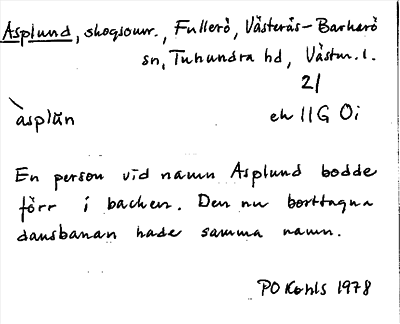 Asplund, skogsomr., Fullerö, Västerås-Barkarö
sn, Tuhundra hd, Västm. l.
21
àsplŭn
ek 11G 0i
En person vid namn Asplund bodde
förr i backen. Den nu borttagna
dansbanan hade samma namn.
PO Kohls 1978